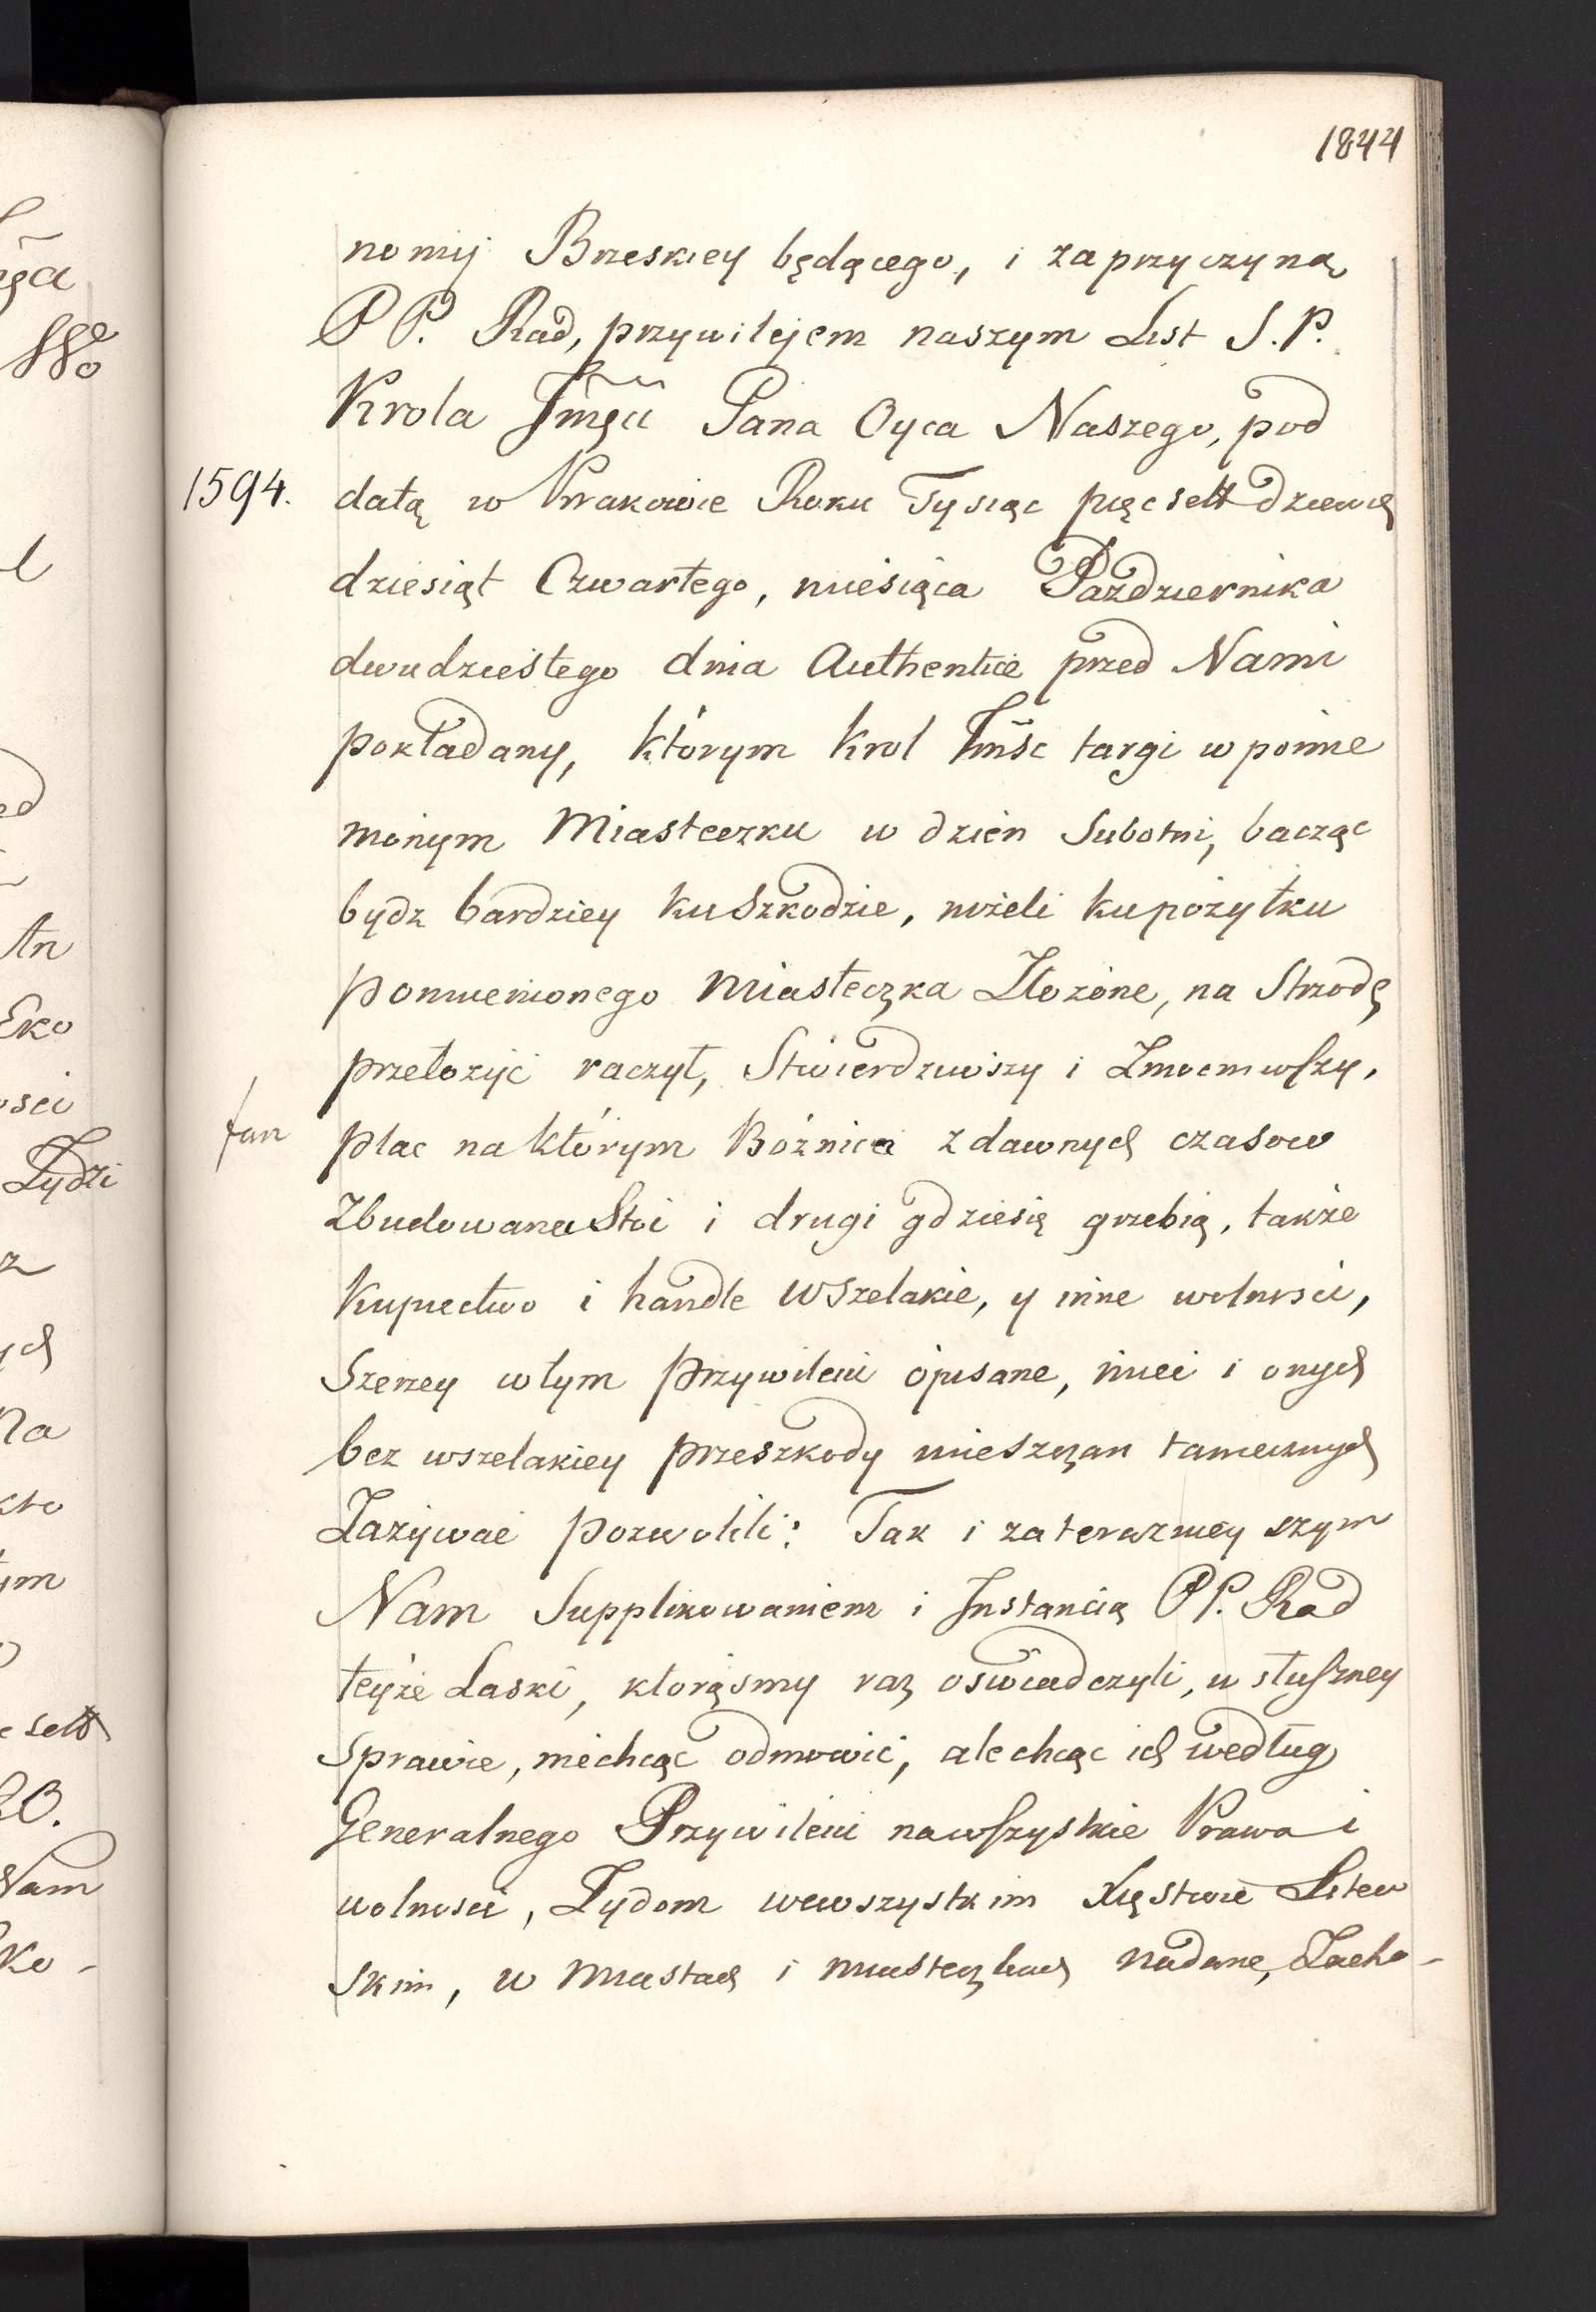 1844
nomij Brzeskiey będącego, i za przyczyną
P P. Rad, przywilejem naszym List S. P.
Krola Jmęci Pana Oyca Naszego, pod
1594. datą w Krakowie Roku Tysiąc pięcsett dziewię
dziesiąt Czwartego, miesiąca Pazdziernika
dwudziestego dnia Authentice przed Nami
pokładany, którym Krol Jmśc targi w pomie
monym Miasteczku w dzien Subotni, bacząc
bydz bardziey ku Szkodzie, niżeli ku pożytku
pomienionego miasteczka Złożone, na Strzodę
przełożyć raczył, Stwierdziwszy i Zmocniwszy,
plac na którym Bóżnica z dawnych czasow
Zbudowana Stoi i drugi gdzie się grzebią, także
Kupiectwo i handle wszelakie, y inne wolnosci,
Szerzey w tym przywileiu opisane, miec i onych
bez wszelakiey przeszkody mieszczan tamecznych
Zażywac pozwolili: Tak i za teraznieyszym
Nam Supplikowaniem i Instancią PP. Rad
teyże Łaski, ktorąsmy raz oswiadczyli, w słuszney
Sprawie, niechcąc odmowić, ale chcąc ich według
Generalnego Przywileiu na wszystkie Prawa i
wolnosci, Żydom we wszystkim Xięstwie Litew
skim, w miastach i miasteczkach nadane, Zacho-
Eko
osci
Żydzi
Nam